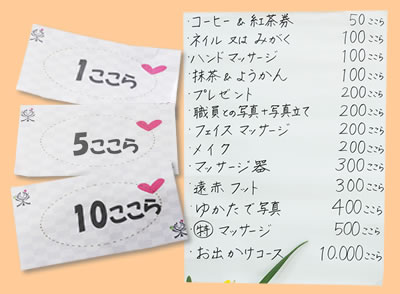 1ここら
5ここら
10ここら
・コーヒー&紅茶券 50ここら
・ネイル 又は みがく 100ここら
・ハンドマッサージ 100ここら
・抹茶&ようかん 100ここら
・プレゼント 200ここら
・職員との写真+写真立て 200ここら
・フェイス マッサージ 200ここら
・メイク 200ここら
・マッサージ器 300ここら
・遠赤フット 300ここら
・ゆかたで写真 400ここら
・㊕マッサージ 500ここら
・お出かけコース 10.000ここら